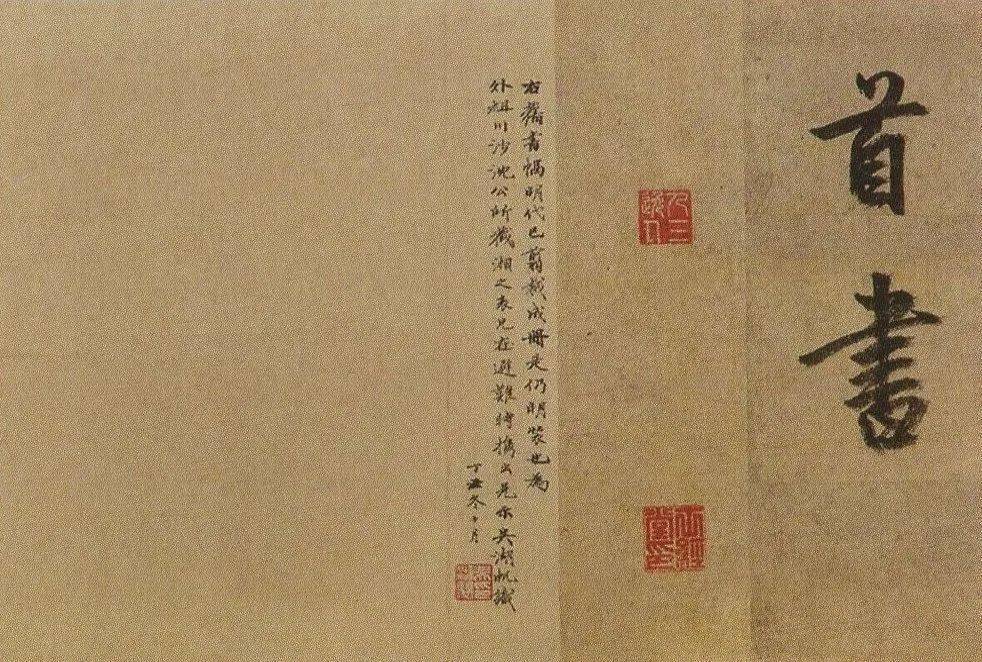 首書
右舊書橫明代已剪裁成冊是仍明裝也為
外祖川沙沈公所藏湘之表兄在避難時攜出見示吳湖帆識
丁丑冬十月